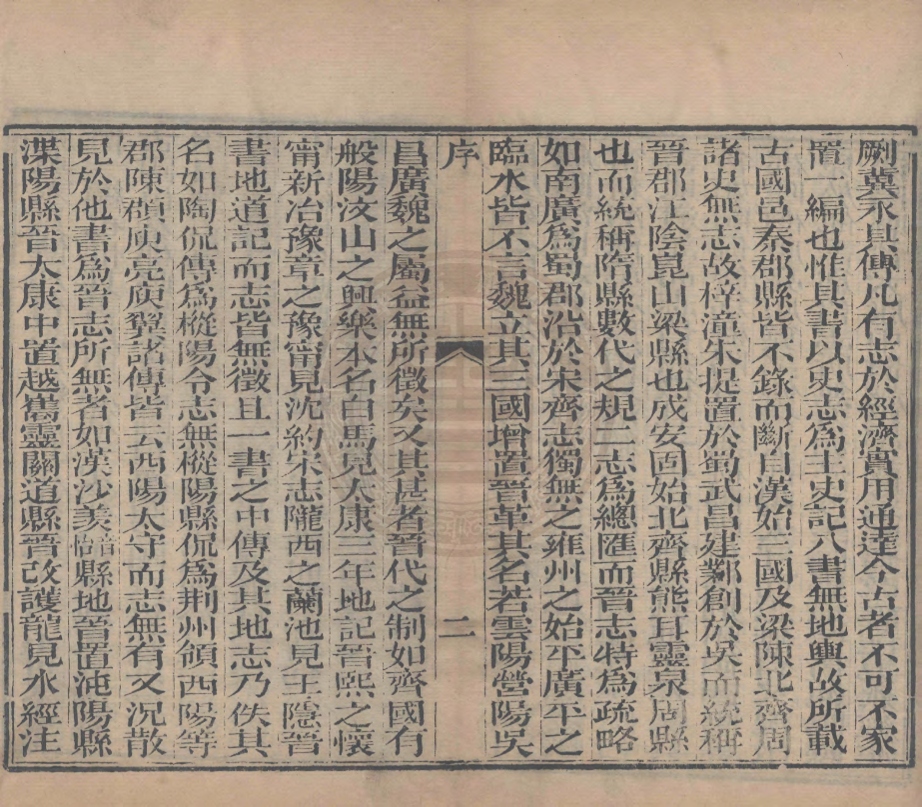 劂冀永其傳凡有志於經濟實用通達今古者不可不家
置一編也惟其書以史志爲主史記八書無地輿故所載
古國邑秦郡縣皆不錄而斷自漢始三國及梁陳北齊周
諸史無志故梓潼朱提置於蜀武昌建鄴創於吳而統稱
晉郡江陰崑山梁縣也成安固始北齊縣熊耳靈泉周縣
也而統稱隋縣數代之規二志爲總匯而晉志特爲疏略
如南廣爲蜀郡沿於宋齊志獨無之雍州之始平廣平之
臨水皆不言魏立其三國增置晉革其名若雲陽營陽吳
序 二
昌廣魏之屬益無所徵矣又其甚者晉代之制如齊國有
般陽汶山之興樂本名白馬見太康三年地記晉熙之懷
甯新冶豫章之豫甯見沈約宋志隴西之蘭池見王隱晉
書地道記而志皆無徵且一書之中傳及其地志乃佚其
名如陶侃傳爲樅陽令志無樅陽縣侃爲荆州領西陽等
郡陳頵庾亮庾翼諸傳皆云西陽太守而志無有又況散
見於他書爲晉志所無者如漢沙羨縣地晉置沌陽縣
漢陽縣晉太康中置越舊靈關道縣晉改護龍見水經注